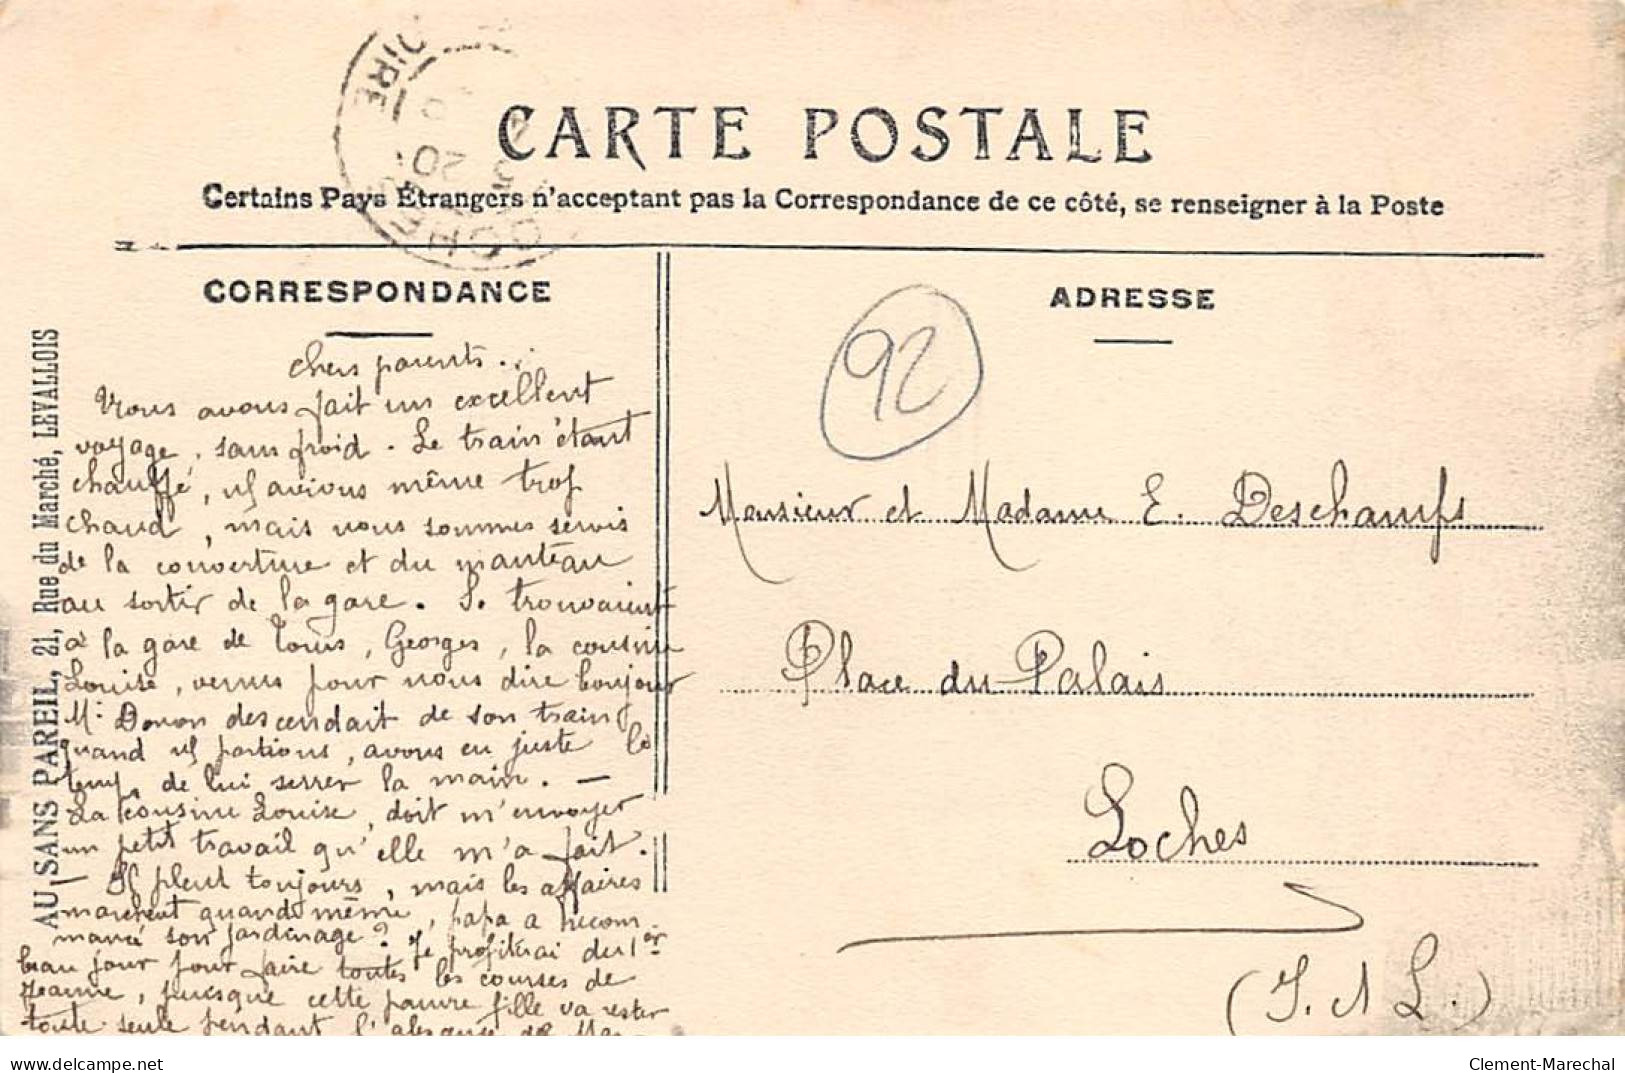 CARTE POSTALE
Certains Pays Étrangers n'acceptent pas la Correspondance de ce côté, se renseigner à la Poste
CORRESPONDANCE
ADRESSE
AU SANS PAREIL, 21, Rue du Marché, LEVALLOIS
LOCHES
OIRE
20
92
Chers parents.
Nous avons fait un excellent
voyage, sans froid. Le train étant
chauffé, ns avions même trop
chaud, mais nous sommes servis
de la couverture et du manteau
au sortir de la gare. Se trouvaient
à la gare de Tours, Georges, la cousine
Louise, venus pour nous dire bonjour
Mr descendait de son train
quand ns partions, avons eu juste le
temps de lui serrer la main. —
La cousine Louise, doit m'envoyer
un petit travail qu'elle m'a fait.
— Il pleut toujours, mais les affaires
marchent quand même, papa a recom
mencé son jardinage? Je profiterai du 1er
beau jour pour faire toutes les courses de
Jeanne, puisque cette pauvre fille va rester
toute seule pendant l'absence de
Monsieur et Madame E. Deschamps
Place du Palais
Loches
(I. et L.)
Clement-Marechal
delcampe.net